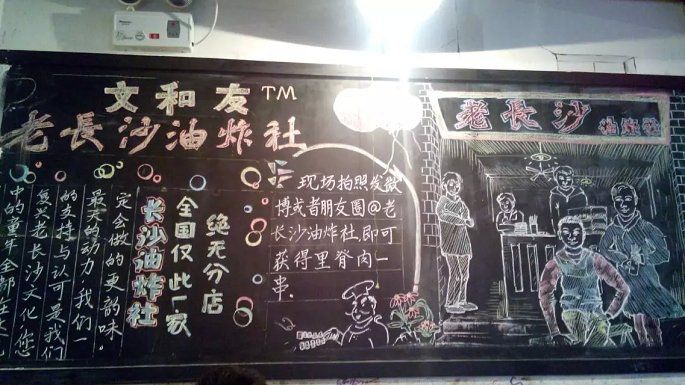 文和友™
老長沙油炸社
中的童年全部在
复兴老长沙文化,您
的支持与认可是我们
最大的动力,我们一
定会做的更韵味。
长沙油炸社
全国仅此一家
绝无分店
现场拍照发微
博或者朋友圈@老
长沙油炸社,即可
获得里脊肉一
串.
老長沙 油炸社